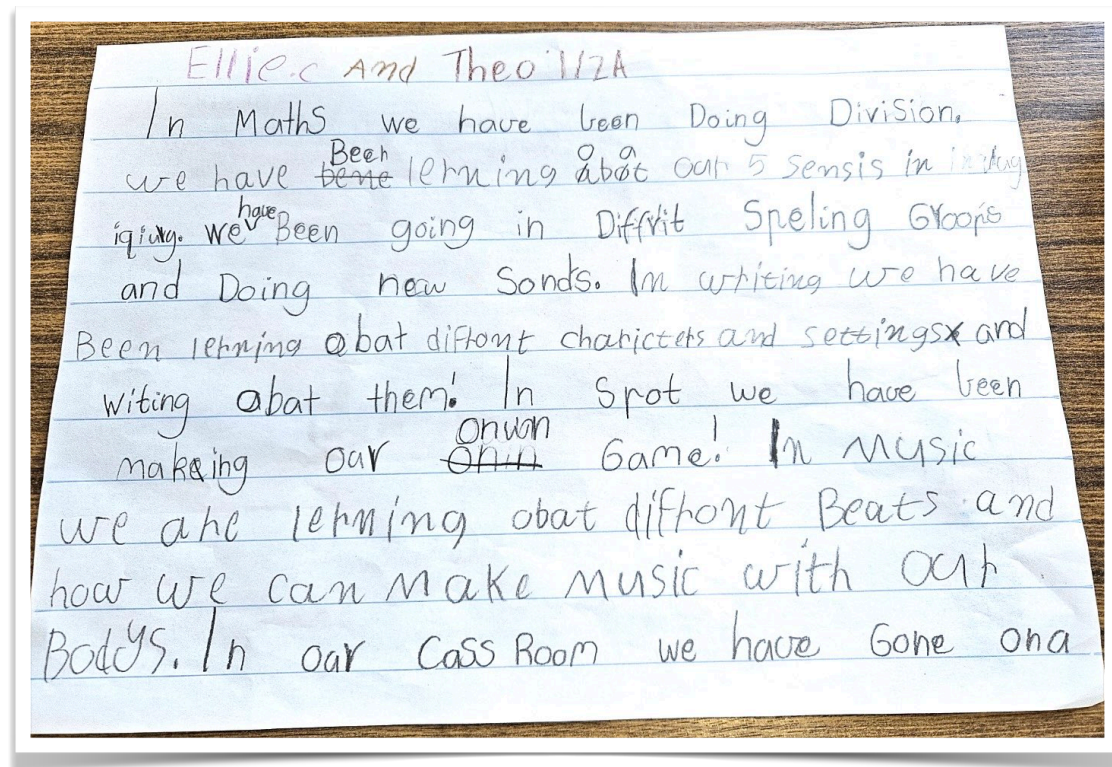 Ellie.c And Theo 1/2A
In Maths we have been Doing Division.
we have bene Been lerning abat our 5 sensis in
iqiury. we have Been going in Diffrit Speling Groops
and Doing new Sonds. In writing we have
Been lerning abat diffront charicters and settings and
witing abat them! In Spot we have been
makeing our onin onwon Game! In Music
we are lerning obat diffront Beats and
how we can Make Music with our
Bodys. In our Cass Room we have Gone ona